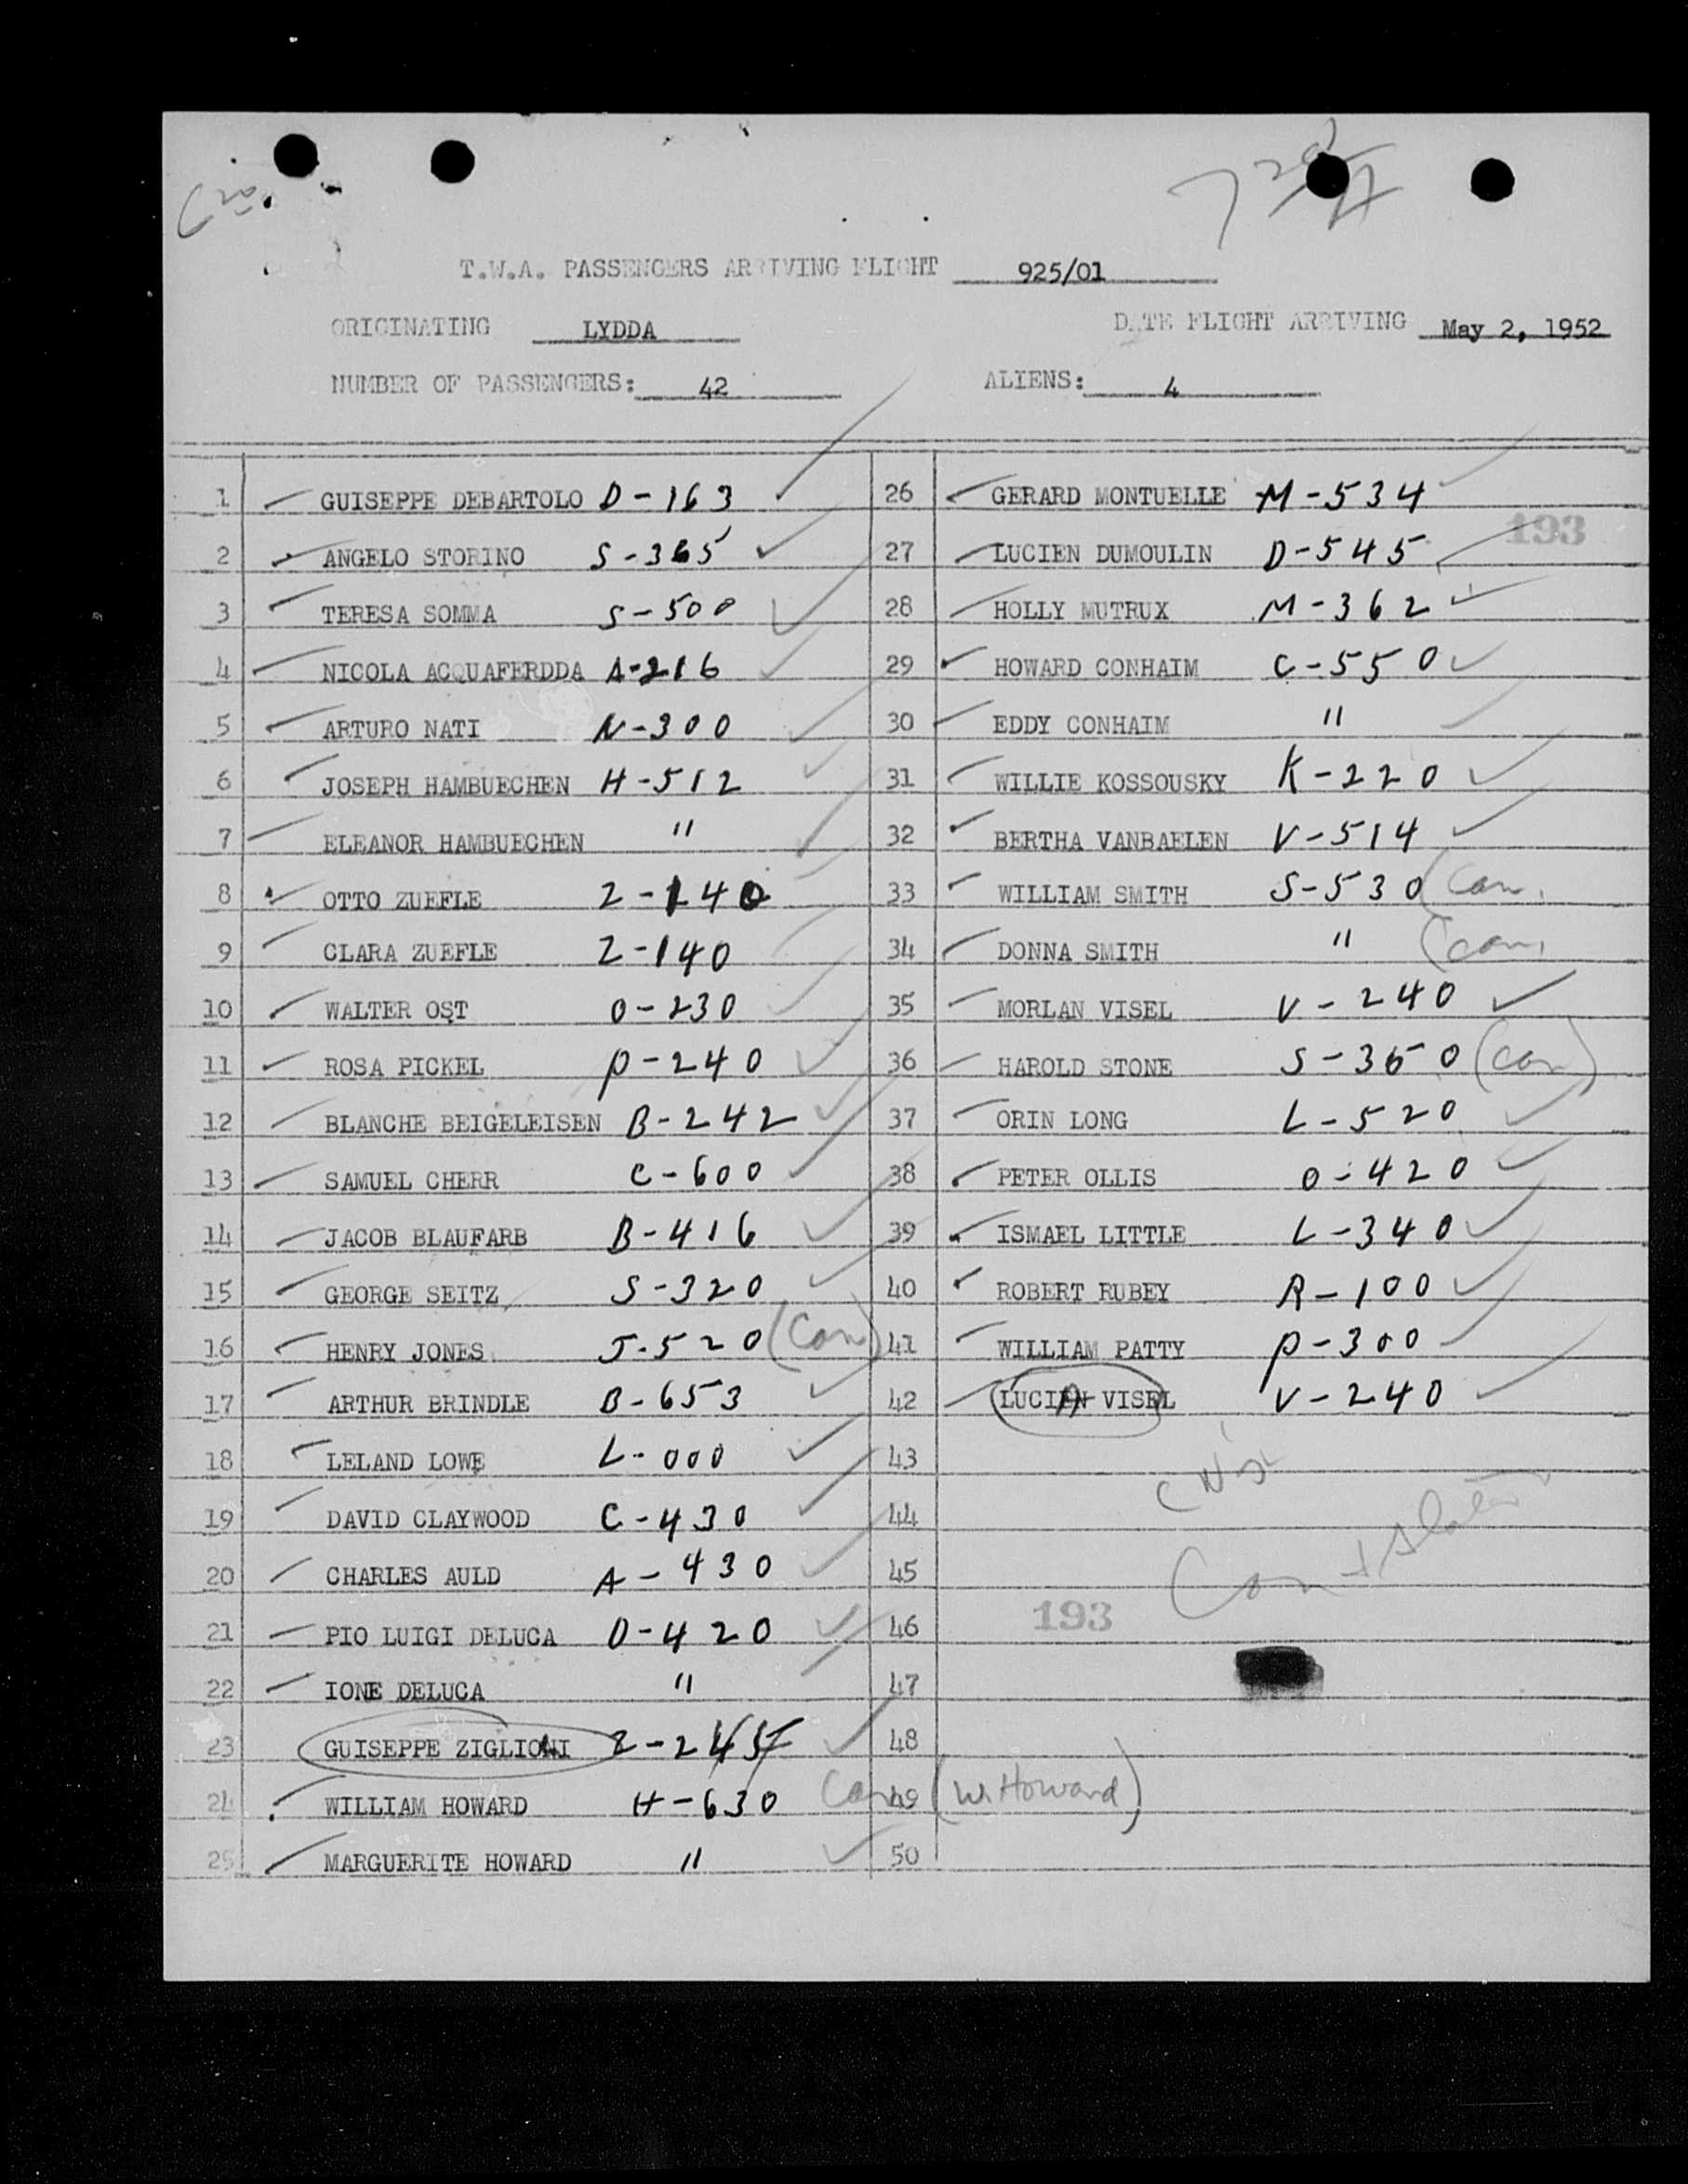 T.W.A. PASSENGERS ARRIVING FLIGHT 925/01
ORIGINATING LYDDA DATE FLIGHT ARRIVING May 2, 1952
NUMBER OF PASSENGERS: 42 ALIENS: 4
1 GUISEPPE DEBARTOLO D-163
2 ANGELO STORINO S-365
3 TERESA SOMMA S-500
4 NICOLA ACQUAFERDDA A-216
5 ARTURO NATI N-300
6 JOSEPH HAMBUECHEN H-512
7 ELEANOR HAMBUECHEN "
8 OTTO ZUEFLE Z-140
9 CLARA ZUEFLE Z-140
10 WALTER OST O-230
11 ROSA PICKEL P-240
12 BLANCHE BEIGELEISEN B-242
13 SAMUEL CHERR C-600
14 JACOB BLAUFARB B-416
15 GEORGE SEITZ S-320
16 HENRY JONES J-520 (Can)
17 ARTHUR BRINDLE B-653
18 LELAND LOWE L-000
19 DAVID CLAYWOOD C-430
20 CHARLES AULD A-430
21 PIO LUIGI DELUCA D-420
22 IONE DELUCA "
23 GUISEPPE ZIGLIONI
24 WILLIAM HOWARD H-630 Can
25 MARGUERITE HOWARD "
26 GERARD MONTUELLE M-534
193
27 LUCIEN DUMOULIN D-545
28 HOLLY MUTRUX M-362
29 HOWARD CONHAIM C-550
30 EDDY CONHAIM "
31 WILLIE KOSSOUSKY K-220
32 BERTHA VANBAELEN V-514
33 WILLIAM SMITH S-530 (Can.
34 DONNA SMITH " (can,
35 MORLAN VISEL V-240
36 HAROLD STONE S-350 (Can)
37 ORIN LONG L-520
38 PETER OLLIS O-420
39 ISMAEL LITTLE L-340
40 ROBERT RUBEY R-100
41 WILLIAM PATTY P-300
42 LUCIEN VISEL V-240
43
44
45
46 193
47
48
49 (W. Howard)
50